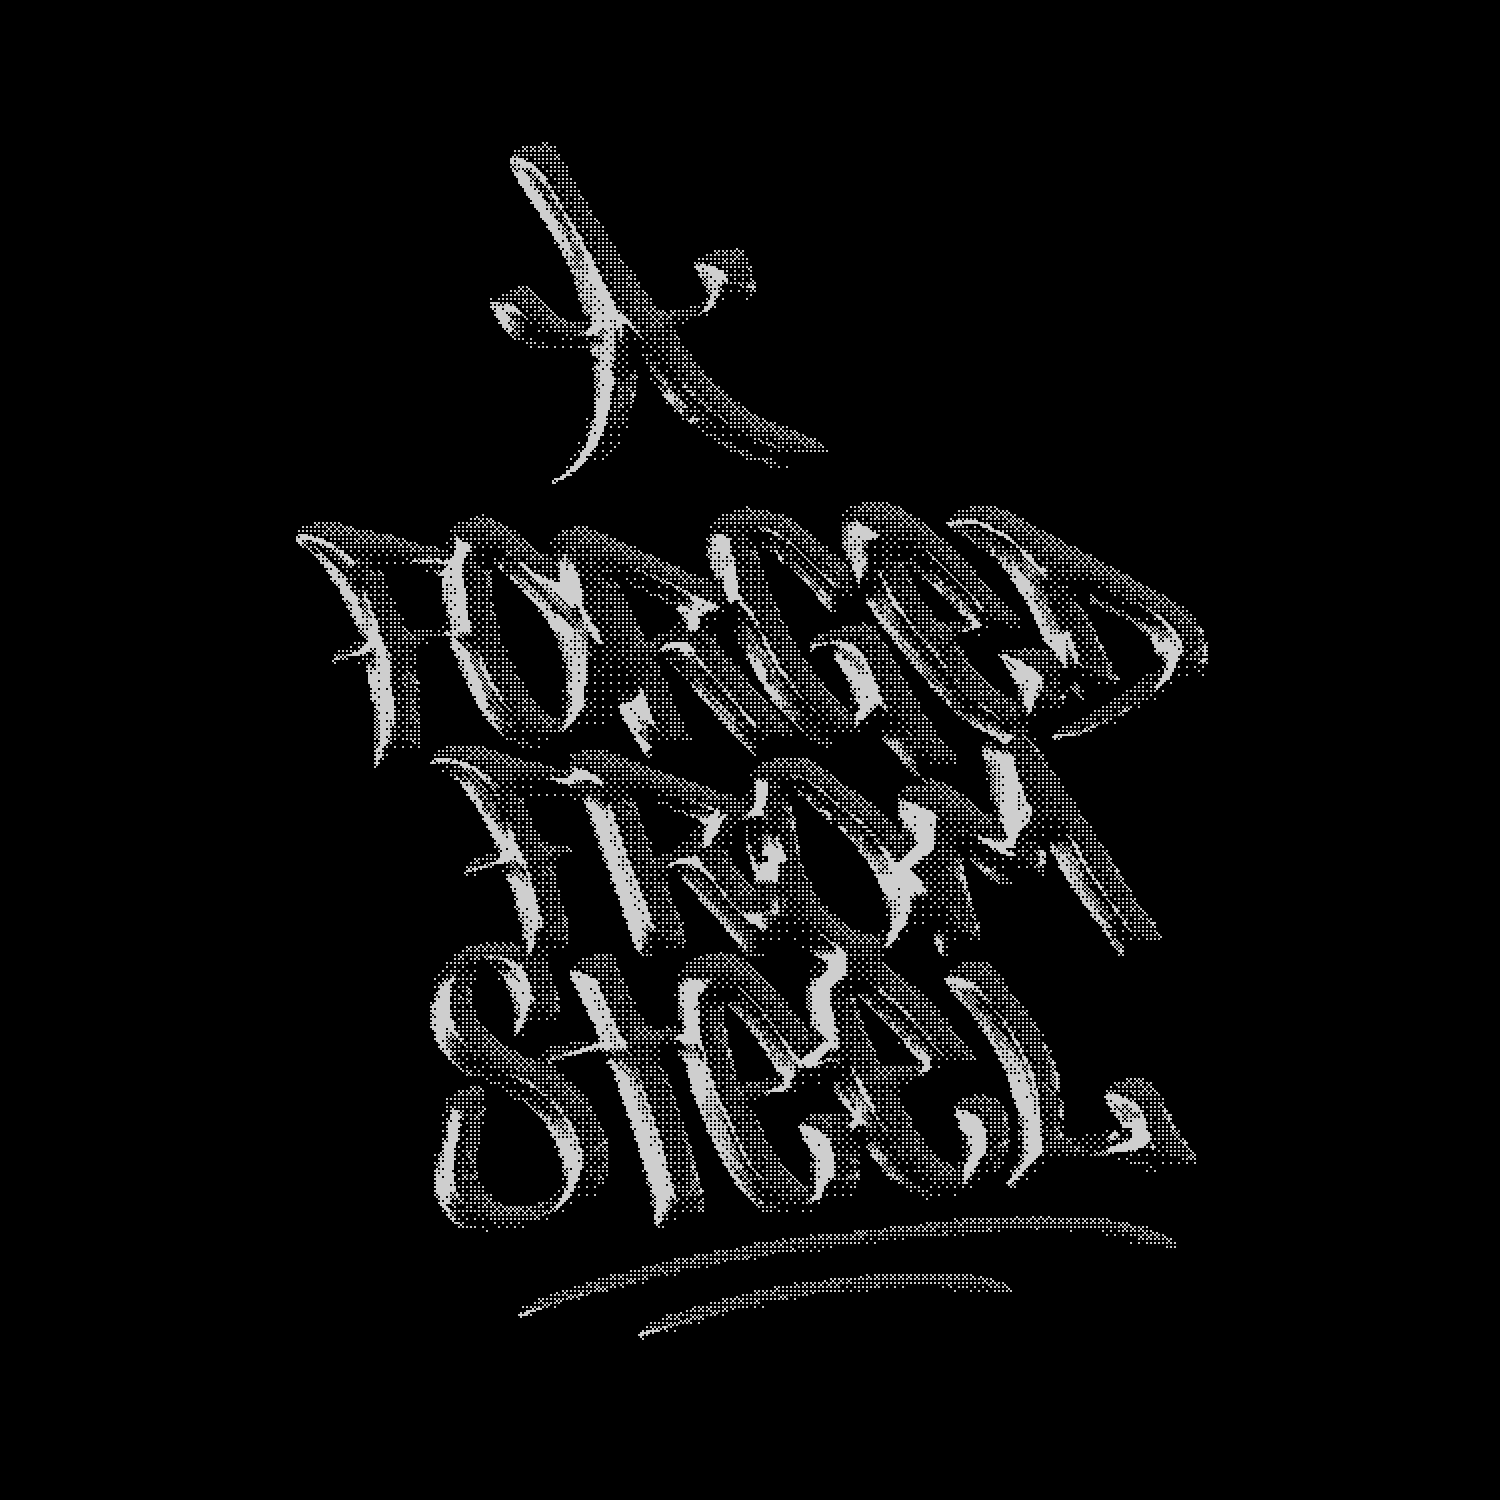 FORGED
FROM
STEEL